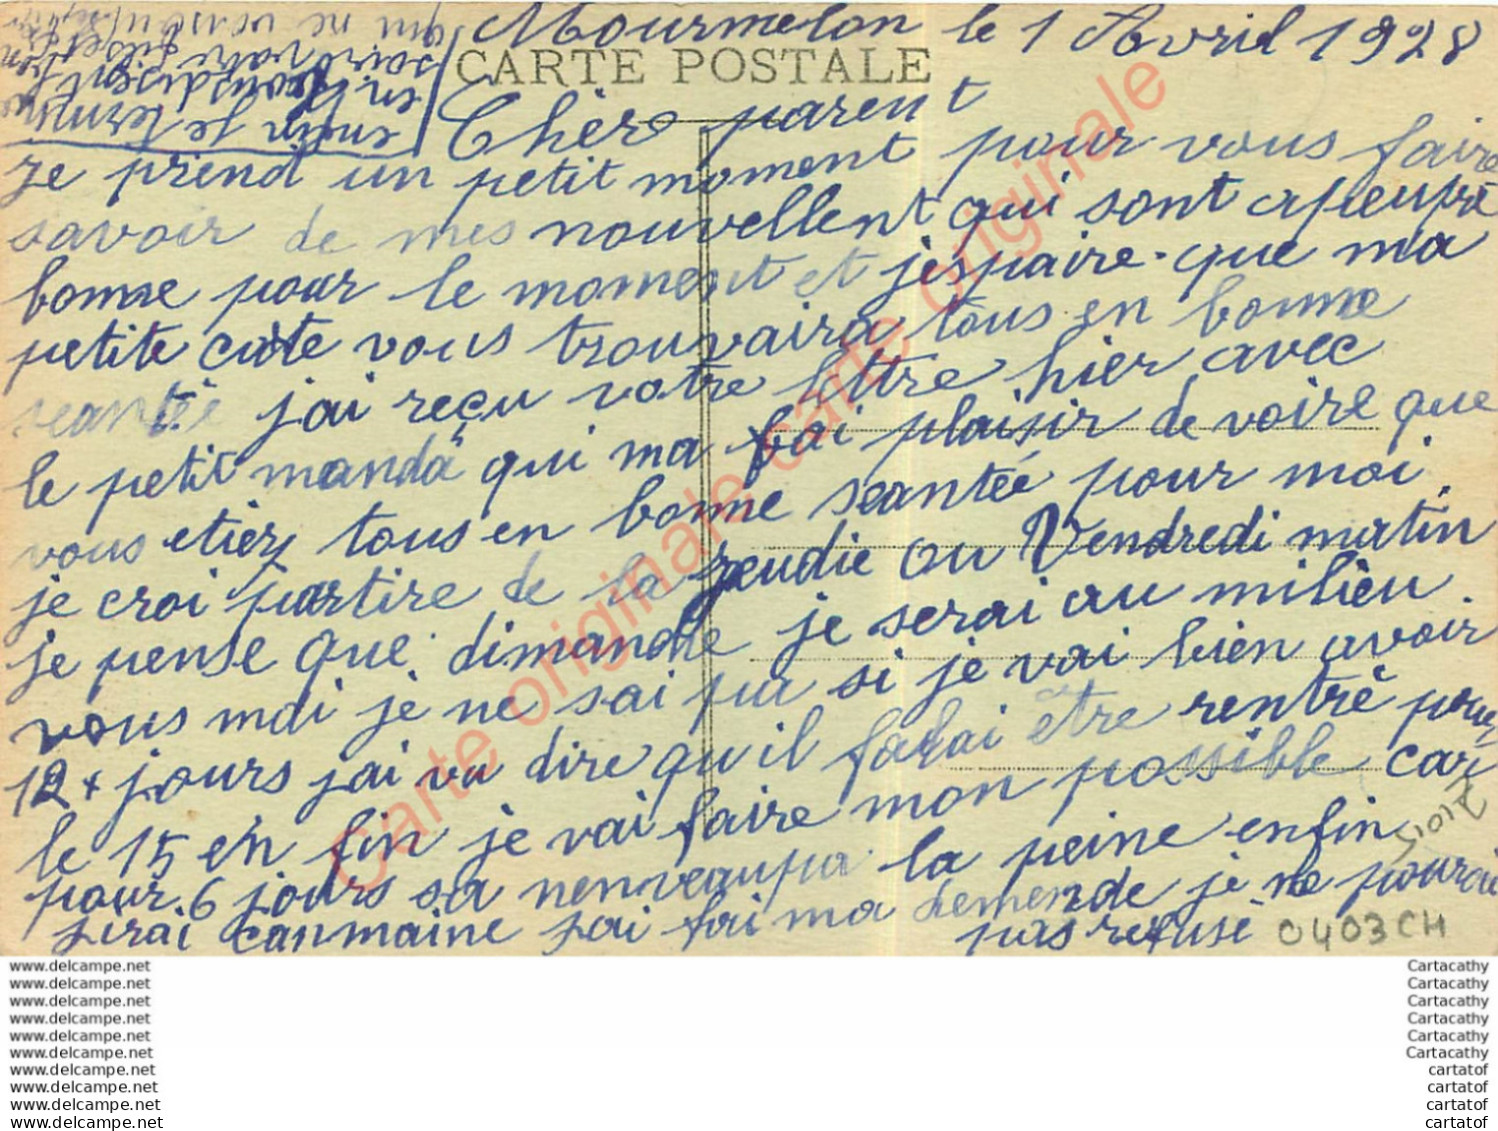 Mourmelon le 1 Avril 1928
CARTE POSTALE
Chèrs parent
je prend un petit moment pour vous faire
savoir de mes nouvellent qui sont apeuprè
bonne pour le moment et jéspaire que ma
petite cuite vous trouvaira tous en bonne
seantée jai reçu votre lettre hier avec
le petit manda qui ma fai plaisir de voire que
vous etiez tous en bonne seantée pour moi
je croi partire de la jeudie ou Vendredi matin
je pense que dimanche je serai au milieu
vous moi je ne sai pa si je vai bien avoir
12 jours jai vu dire qu'il falai être rentré pour
le 15 en fin je vai faire mon possible car
pour 6 jours sa nenveaupa la peine enfin
jirai canmaine jai fai ma demende je ne pourai
pas refusé
0403CH
enfin je termine
en vous disent
votre fils
qui ne vous
Carte originale carte originale carte originale
www.delcampe.net
www.delcampe.net
www.delcampe.net
www.delcampe.net
www.delcampe.net
www.delcampe.net
www.delcampe.net
www.delcampe.net
www.delcampe.net
www.delcampe.net
Cartacathy
Cartacathy
Cartacathy
Cartacathy
Cartacathy
Cartacathy
cartatof
cartatof
cartatof
cartatof